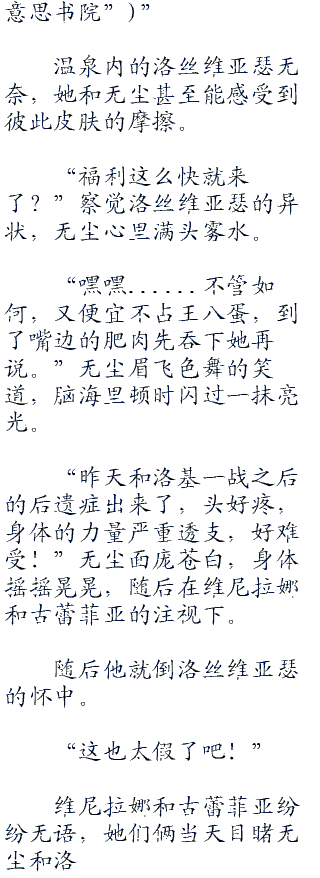 意思书院”)”
温泉内的洛丝维亚瑟无
奈，她和无尘甚至能感受到
彼此皮肤的摩擦。
“福利这么快就来
了？”察觉洛丝维亚瑟的异
状，无尘心里满头雾水。
“嘿嘿......不管如
何，又便宜不占王八蛋，到
了嘴边的肥肉先吞下她再
说。”无尘眉飞色舞的笑
道，脑海里顿时闪过一抹亮
光。
“昨天和洛基一战之后
的后遗症出来了，头好疼，
身体的力量严重透支，好难
受！”无尘面庞苍白，身体
摇摇晃晃，随后在维尼拉娜
和古蕾菲亚的注视下。
随后他就倒洛丝维亚瑟
的怀中。
“这也太假了吧！”
维尼拉娜和古蕾菲亚纷
纷无语，她们俩当天目睹无
尘和洛